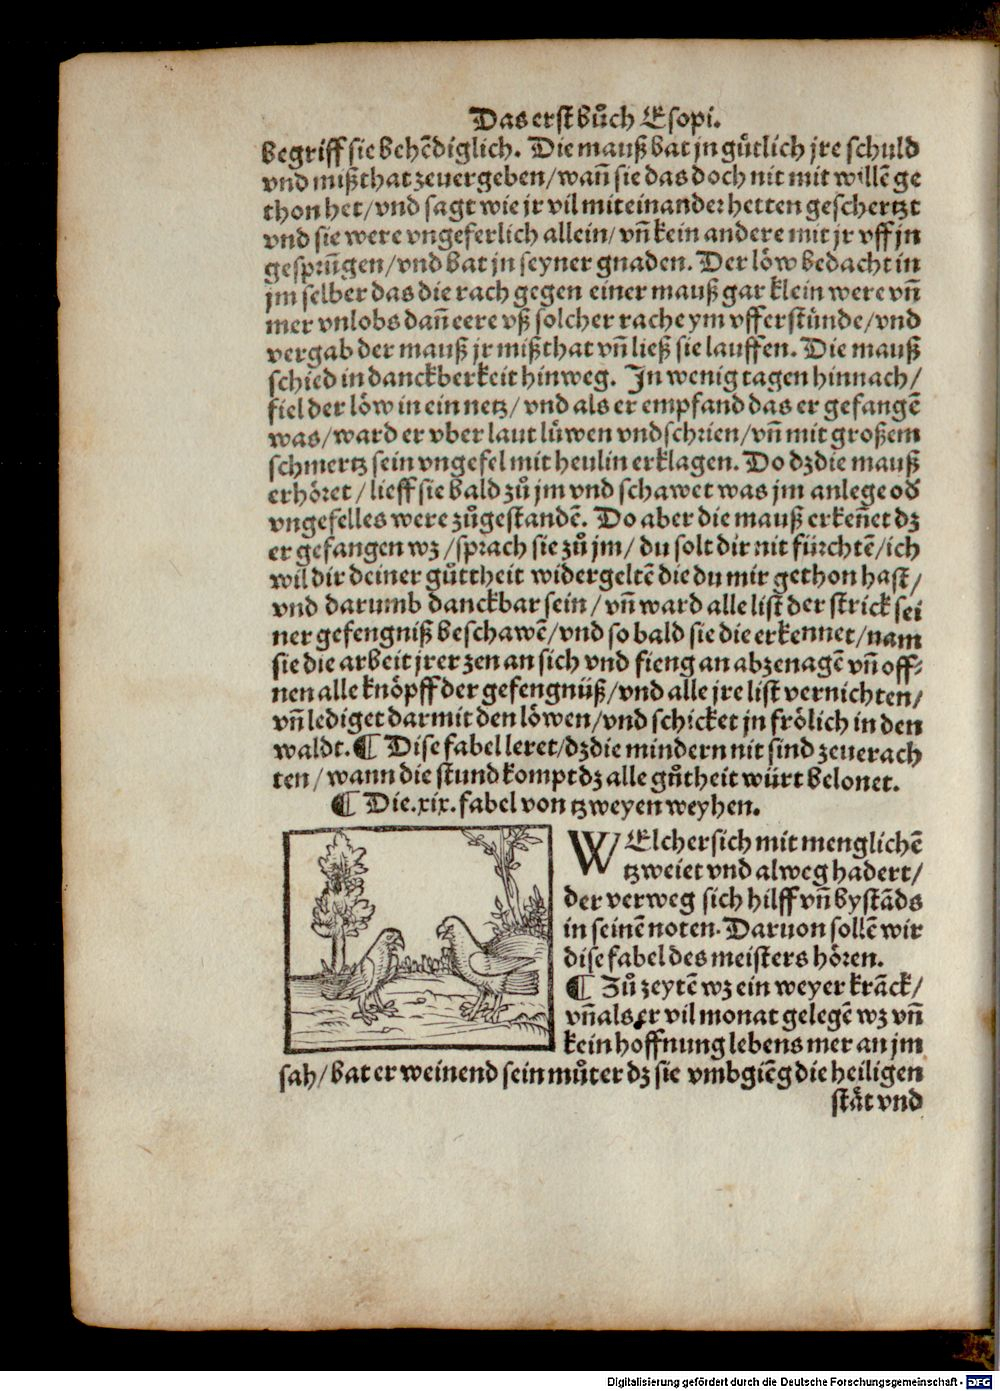 Das erst bůch Esopi.
begriff sie behẽdiglich. Die mauß bat jn gůtlich jre schuld
vnd mißthat zeuergeben/wañ sie das doch nit mit willẽ ge
thon het/vnd sagt wie jr vil miteinander hetten geschertzt
vnd sie were vngeferlich allein/vñ kein andere mit jr vff jn
gesprũgen/vnd bat jn seyner gnaden. Der löw bedacht in
jm selber das die rach gegen einer mauß gar klein were vñ
mer vnlobs dañ eere vß solcher rache ym vfferstünde/vnd
vergab der mauß jr mißthat vñ ließ sie lauffen. Die mauß
schied in danckberkeit hinweg. In wenig tagen hinnach/
fiel der löw in ein netz/vnd als er empfand das er gefangẽ
was/ward er vber laut lüwen vnd schrien/vñ mit großem
schmertz sein vngefel mit heulin erklagen. Do dz die mauß
erhöret/lieff sie bald zů jm vnd schawet was jm anlege od
vngefelles were zůgestandẽ. Do aber die mauß erkeñet dz
er gefangen wz/sprach sie zů jm/du solt dir nit fürchtẽ/ich
wil dir deiner gůttheit widergeltẽ die du mir gethon hast/
vnd darumb danckbar sein/vñ ward alle list der strick sei
ner gefengniß beschawẽ/vnd so bald sie die erkennet/nam
sie die arbeit jrer zen an sich vnd fieng an abzenagẽ vñ off⸗
nen alle knöpff der gefengnüß/vnd alle jre list vernichten/
vñ lediget darmit den löwen/vnd schicket jn frölich in den
waldt. ¶ Dise fabel leret/dz die mindern nit sind zeuerach
ten/wann die stund kompt dz alle gůtheit würt belonet.
¶ Die .xix. fabel von tzweyen weyhen.
WElcher sich mit menglichẽ
tzweiet vnd alweg hadert/
der verweg sich hilff vñ bystãds
in seinẽ noten. Daruon sollẽ wir
dise fabel des meisters hören.
¶ Zů zeytẽ wz ein weyer krãck/
vñ als er vil monat gelegẽ wz vñ
kein hoffnung lebens mer an jm
sah/bat er weinend sein můter dz sie vmbgiẽg die heiligen
stät vnd
Digitalisierung gefördert durch die Deutsche Forschungsgemeinschaft - DFG